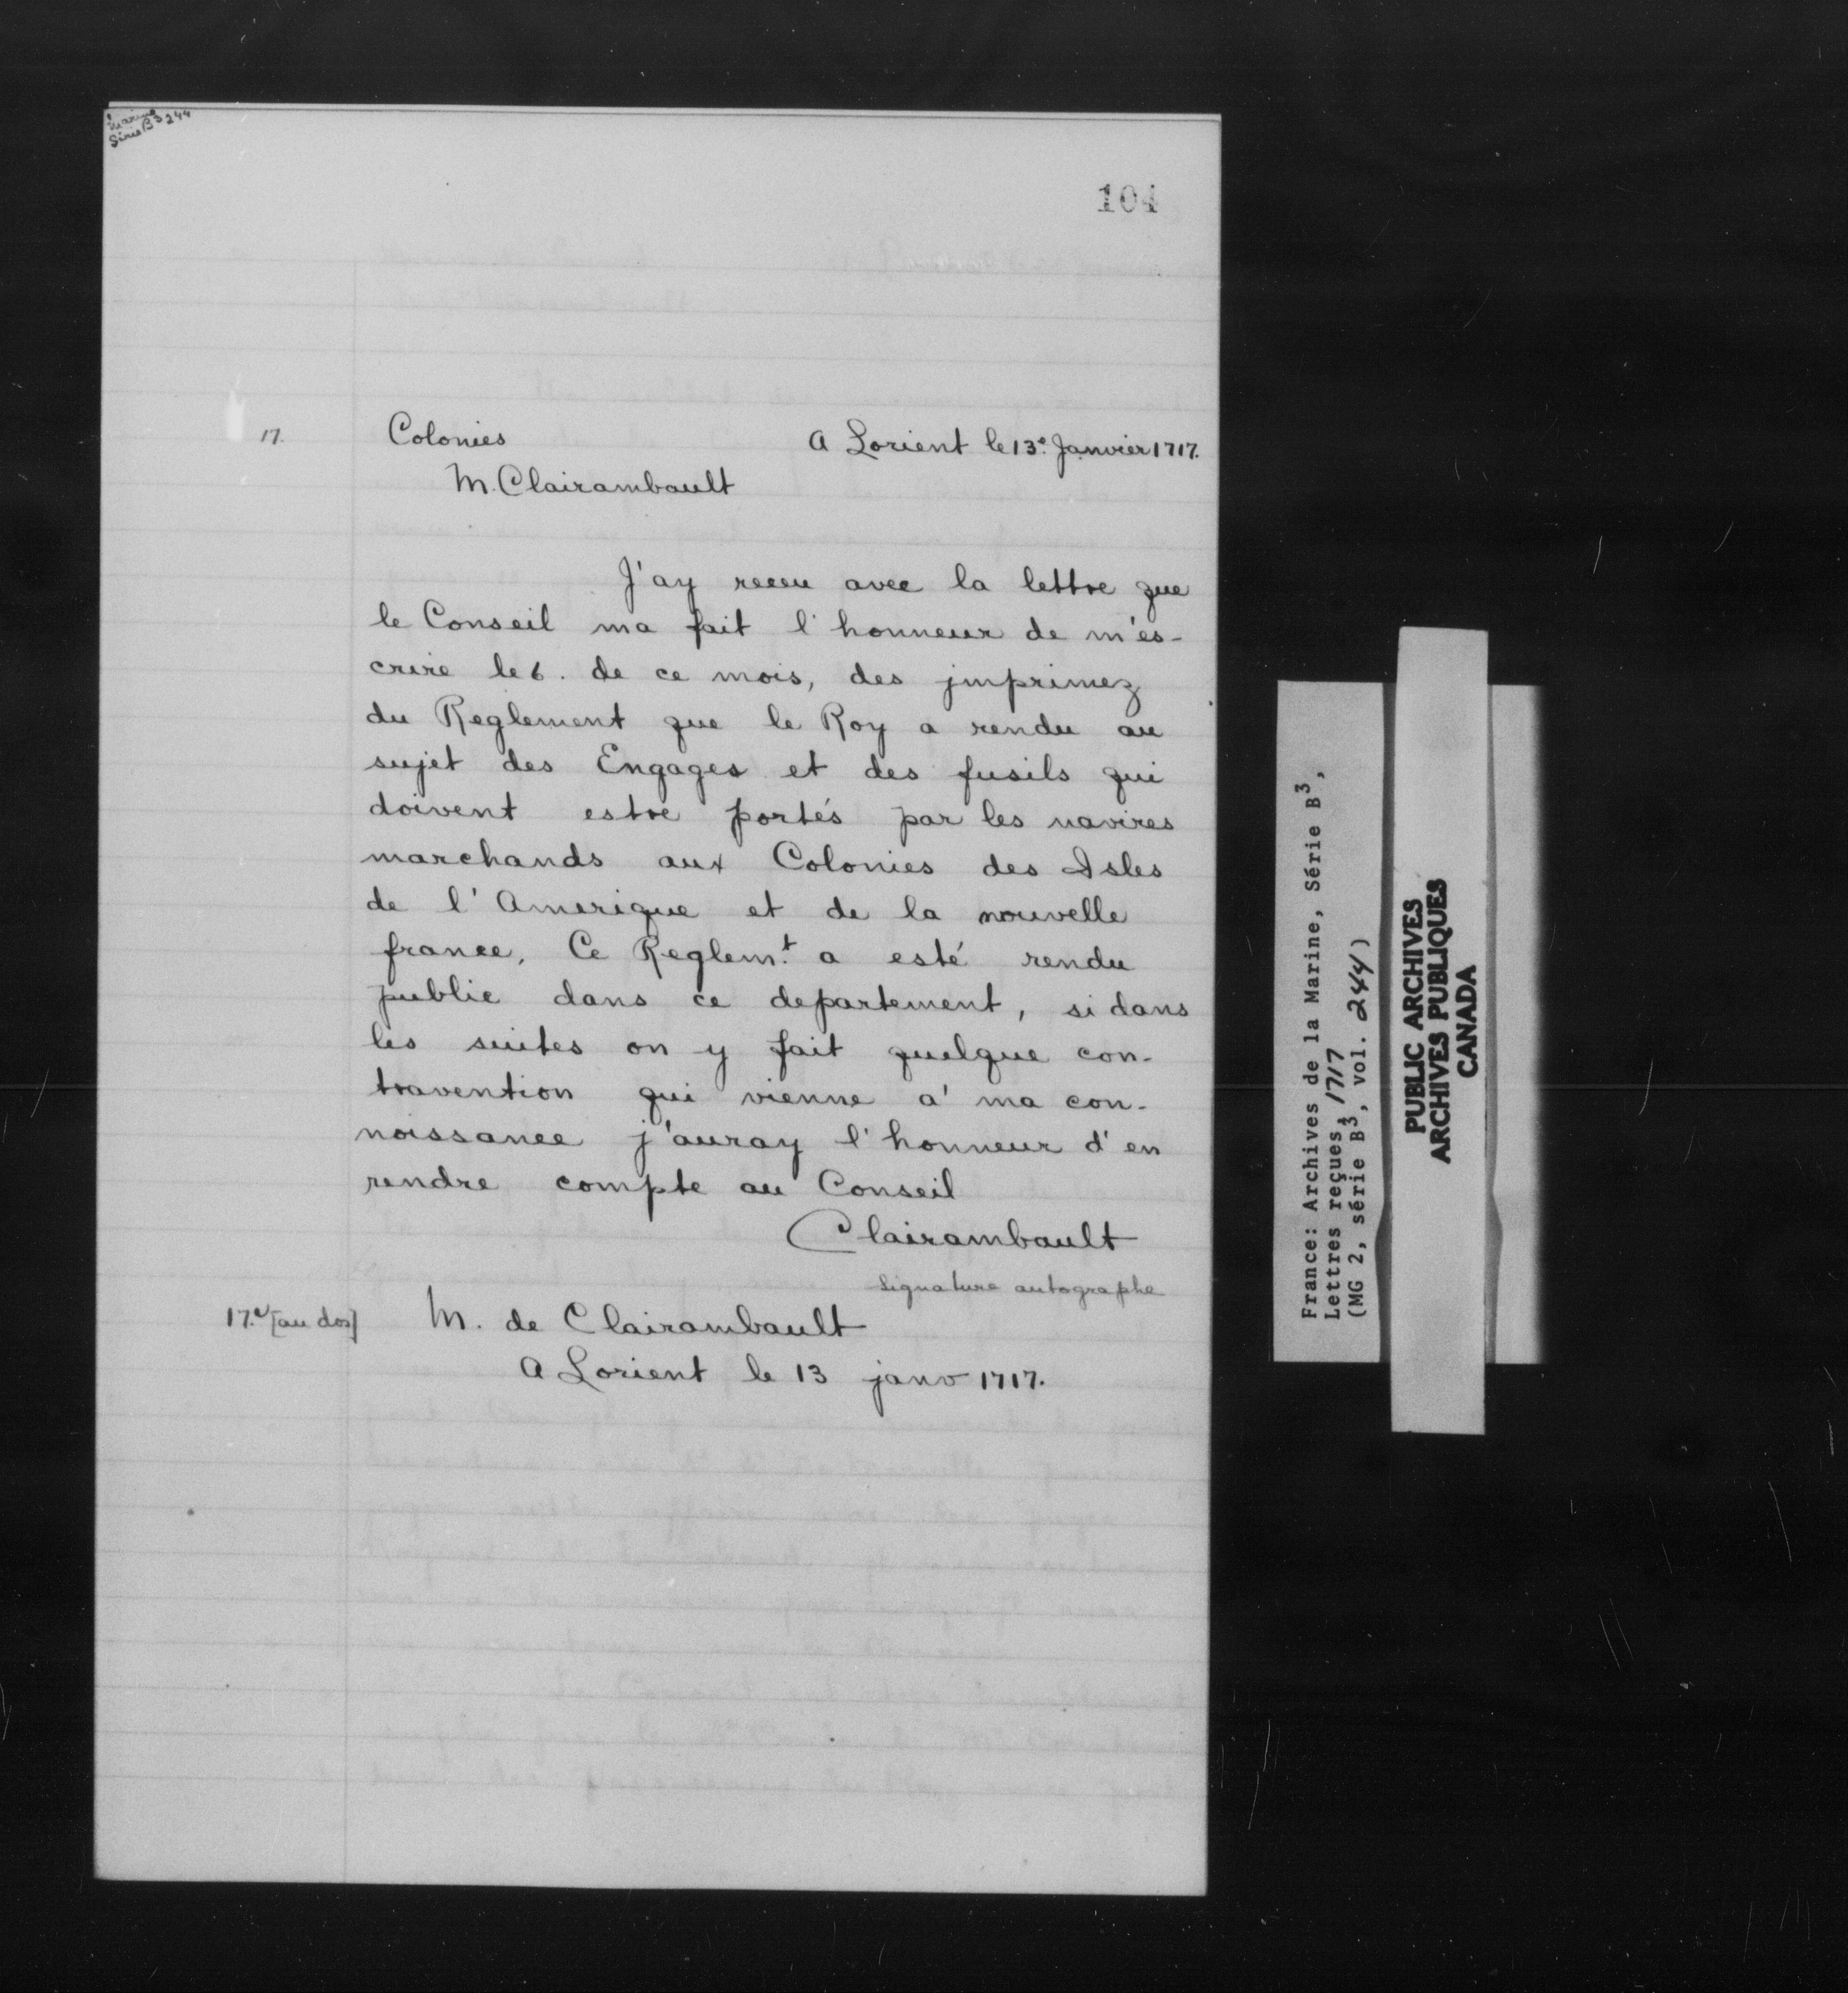 Marine
Série B3 244
104
17.
Colonies
A Lorient le 13e. Janvier 1717.
M. Clairambault
J'ay receu avec la lettre que
le Conseil ma fait l'honneur de m'es-
crire le 6. de ce mois, des jmprimez
du Reglement que le Roy a rendu au
sujet des Engages et des fusils qui
doivent estre portés par les navires
marchands aux Colonies des Isles
de l'Amerique et de la nouvelle
france. Ce Reglem.t a esté rendu
public dans ce departement, si dans
les suites on y fait quelque con-
travention qui vienne a' ma con-
noissance j'auray l'honneur d'en
rendre compte au Conseil
Clairambault
Signature autographe
17.v [au dos]
M. de Clairambault
A Lorient le 13 janv 1717.
France: Archives de la Marine, Série B3,
Lettres reçues, 1717
(MG 2, série B3, vol. 244)
PUBLIC ARCHIVES
ARCHIVES PUBLIQUES
CANADA